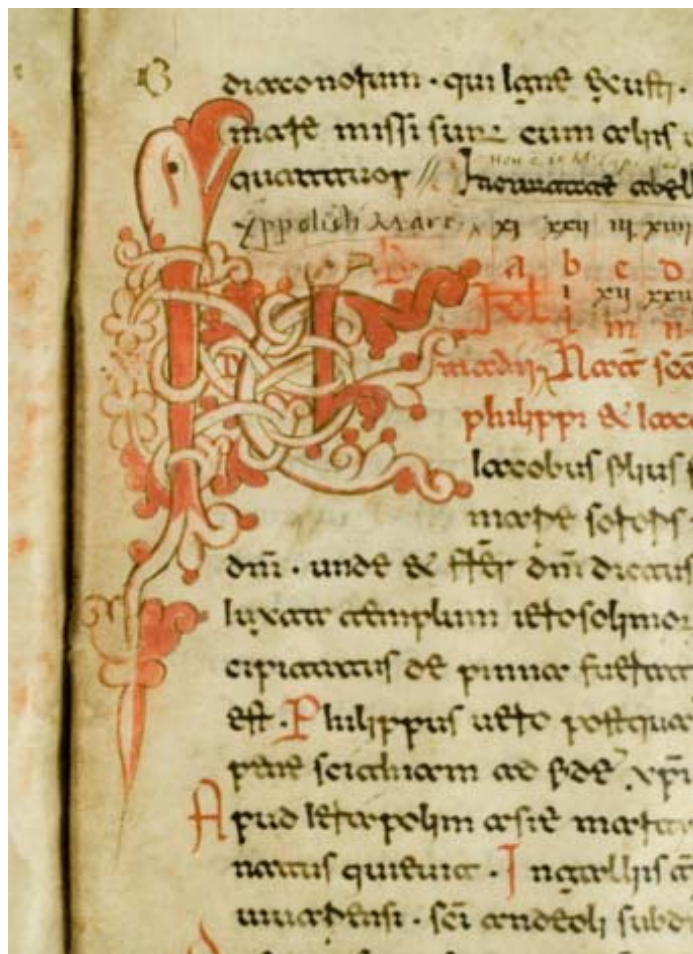 diaconorum · qui
missi sunt cum aliis
quattuor // In civitate abell
yppoliti Mart xi xxii iii xiiii
a b c d
KL i xii xxii
l m n
madii. Nat sco
philippi & iaco
Iacobus filius
matere sororis
dni · unde & frer dni dictus
iuxta templum ierosolimor
cipitatus de pinna fuerat
est · Philippus vero postqua
pene scithiam ad fide xpi
Apud ierapolim asie
natus quievit · In galliis
vivarensi · sci andeoli subd